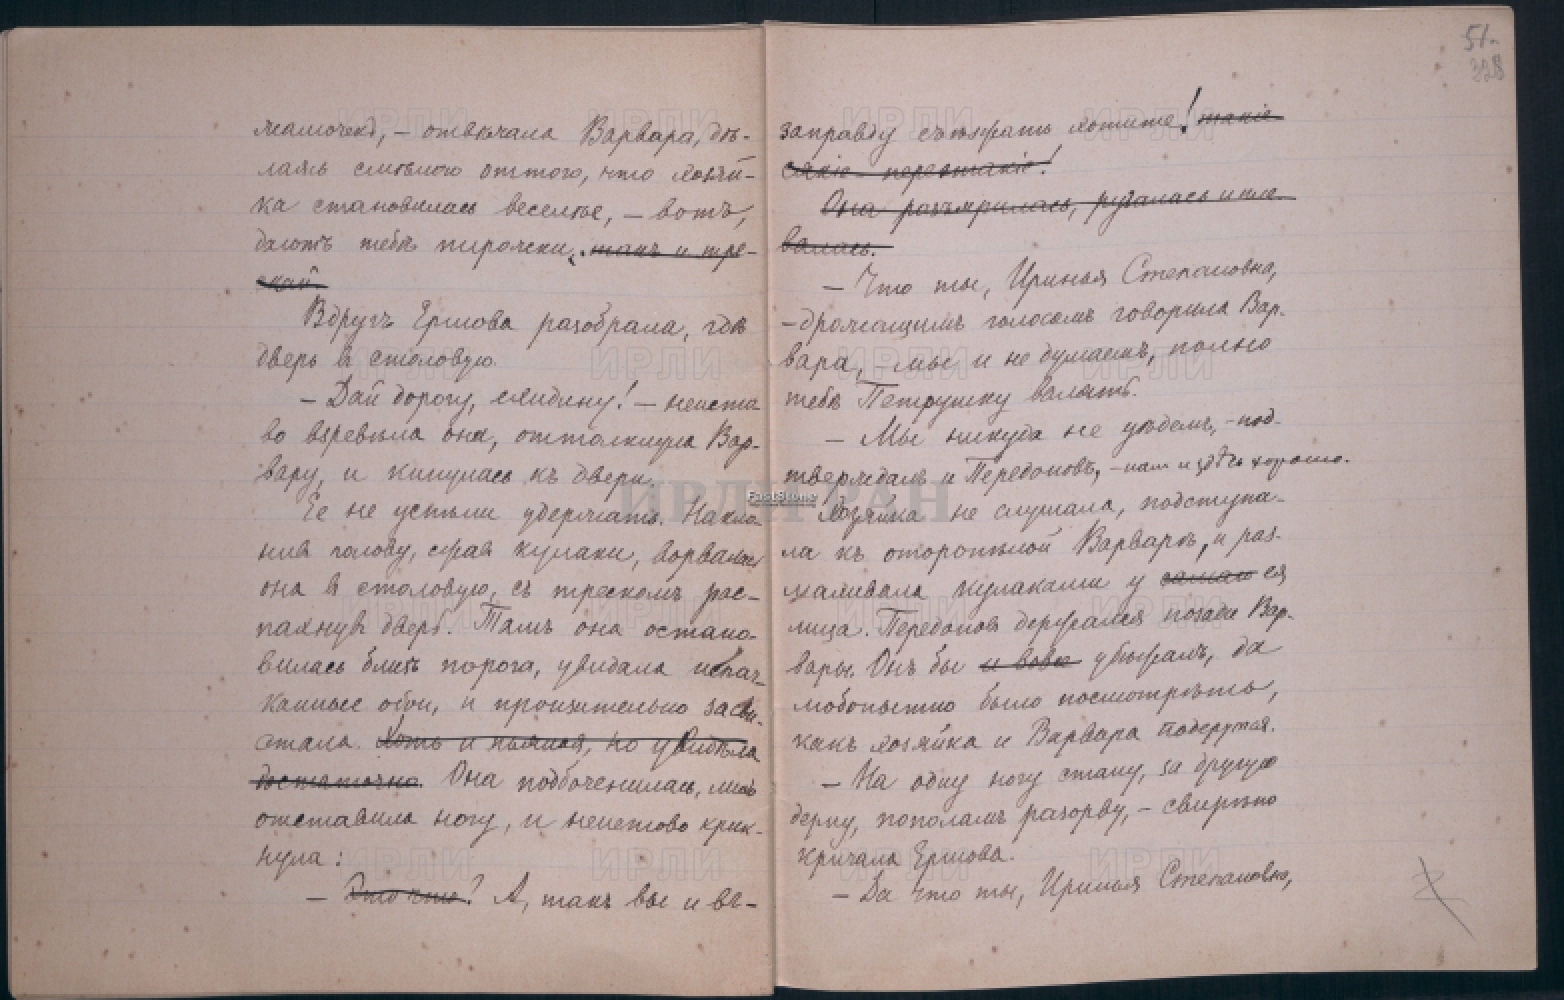 жаточекъ, – отвѣчала Варвара, дѣ-
лаясь смѣлою оттого, что хозяй-
ка становилась веселѣе, – вотъ,
даютъ тебѣ пирожки, такъ и тре-
скай.
Вдругъ Ершова разобрала, гдѣ
дверь въ столовую.
– Дай дорогу, слядину! – неисто
во взревѣла она, оттолкнула Вар-
вару, и кинулась къ двери.
Ее не успѣли удержать. Накло
нивъ голову, сжавъ кулаки, ворвалась
она въ столовую, съ трескомъ рас-
пахнувъ дверь. Тамъ она остано-
вилась близъ порога, увидала испач-
канные обои, и пронзительно засви-
стала. Хоть и пьяная, но увидѣла
достаточно. Она подбоченилась, лихо
отставила ногу, и неистово крик-
нула:
– Это что? А, такъ вы и въ-
51.
328
заправду съѣзжать хотите! такіе
сякіе перетакіе!
Она разъярилась, ругалась и пле
валась.
– Что ты, Иринья Степановна,
– дрожащимъ голосомъ говорила Вар-
вара, – мы и не думаемъ, полно
тебѣ Петрушку валять.
– Мы никуда не уѣдемъ, – под-
тверждалъ и Передоновъ, – нам и здѣсь хорошо.
Хозяйка не слушала, подступа-
ла къ оторопѣлой Варварѣ, и раз-
махивала кулаками у самаго ея
лица. Передоновъ держался позади Вар-
вары. Онъ бы и вовсе убѣжалъ, да
любопытно было посмотрѣть,
какъ хозяйка и Варвара подерутся.
– На одну ногу стану, за другую
дерну, пополамъ разорву, – свирѣпо
кричала Ершова.
– Да что ты, Иринья Степановна,
ИРЛИ РАН
FastStone